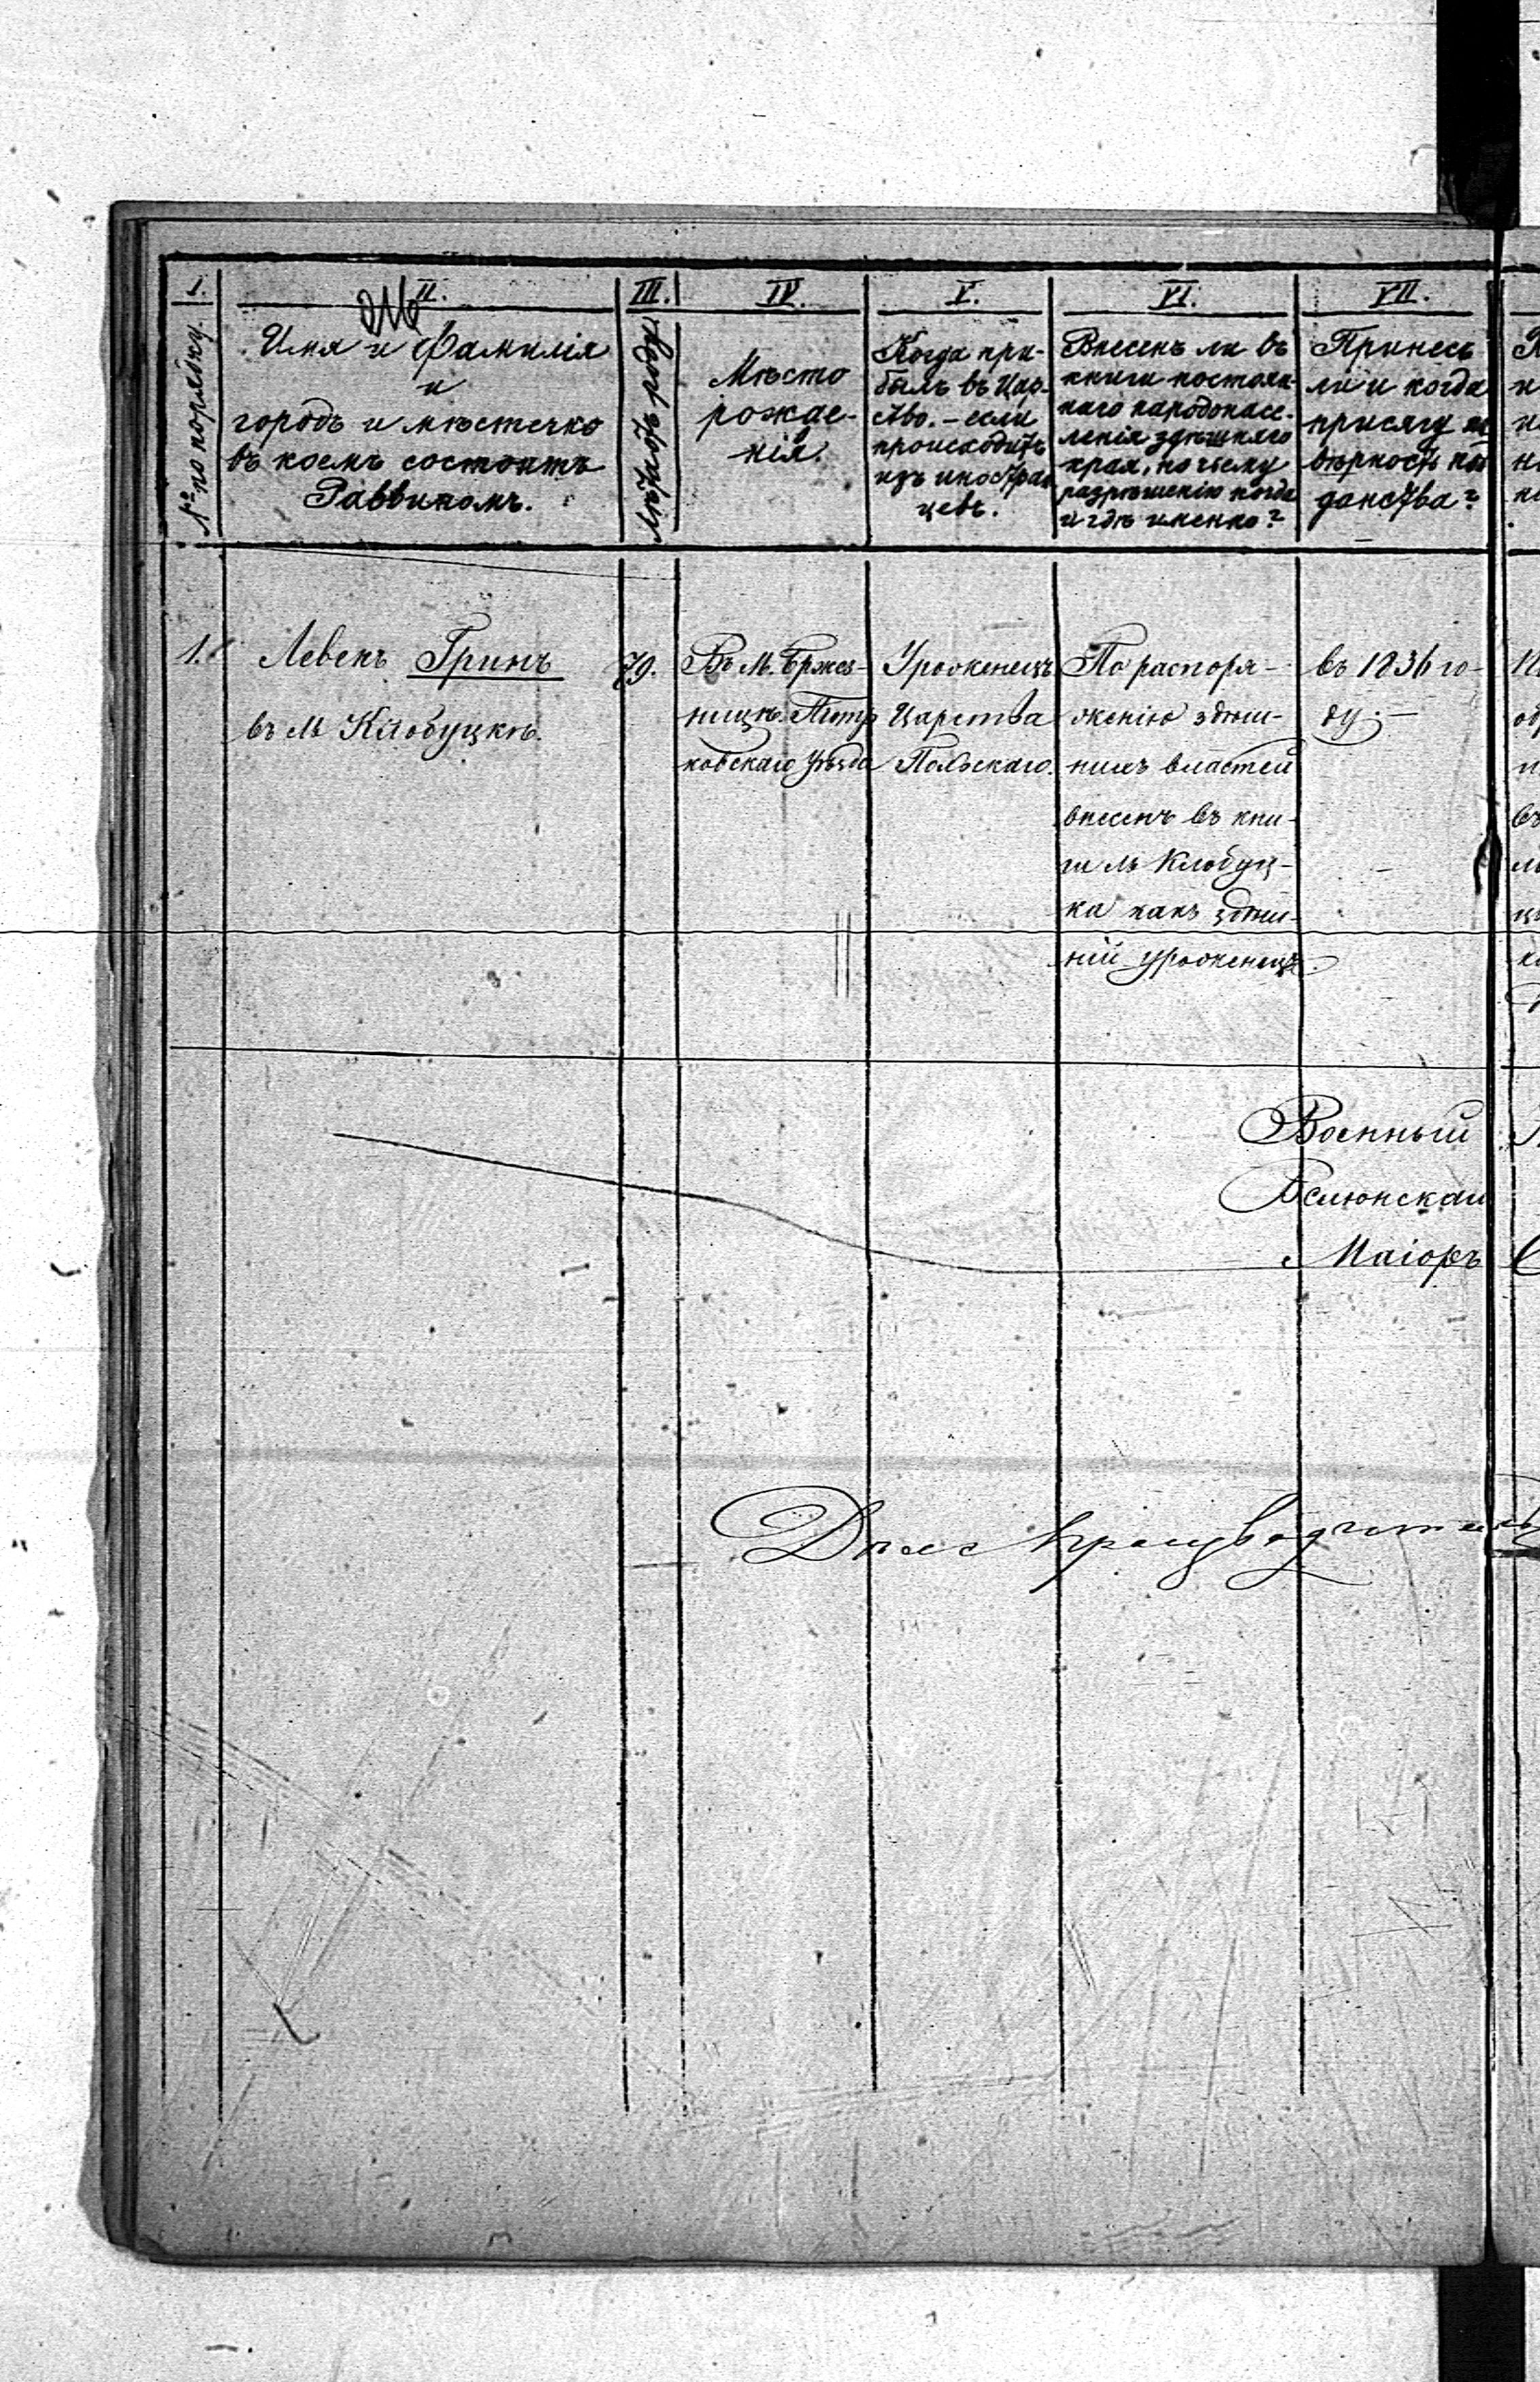 I.
№ по порядку.
II.
Имя и Фамилія
и
городъ и мѣстечко
въ коемъ состоитъ
Раввиномъ.
III.
Мѣстo
рождe-
нія.
IV.
V.
Когда при-
былъ въ Цар-
ство. – если
происходитъ
изъ иностран
цевъ.
VI.
Внесенъ ли въ
книги постоян-
наго народонасе-
ленія здѣшняго
края, по чьему
разрѣшенію когда
и гдѣ именно?
VII.
Принесъ
ли и когда
присягу на
вѣрность под
данства?
1.
Левекъ Гринъ
въ М Клобуцкѣ.
79.
Въ М. Бржез-
ницѣ. Петр
ковскаго уѣзда
Уроженецъ
Царства
Польскаго.
По распоря-
женію здѣш-
нихъ властей
внесенъ въ кни-
ги м Клобуц-
ка какъ здѣш-
ній уроженецъ.
въ 1836 го-
ду. –
Военный
Велюнскаго
Маіоръ
Дѣлопроизводитель